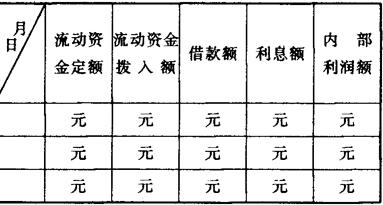 月
日
流动资 流动资金 借款额 利息额 内 部
金定额 拨 入 额 利润额
元 元 元 元 元
元 元 元 元 元
元 元 元 元 元